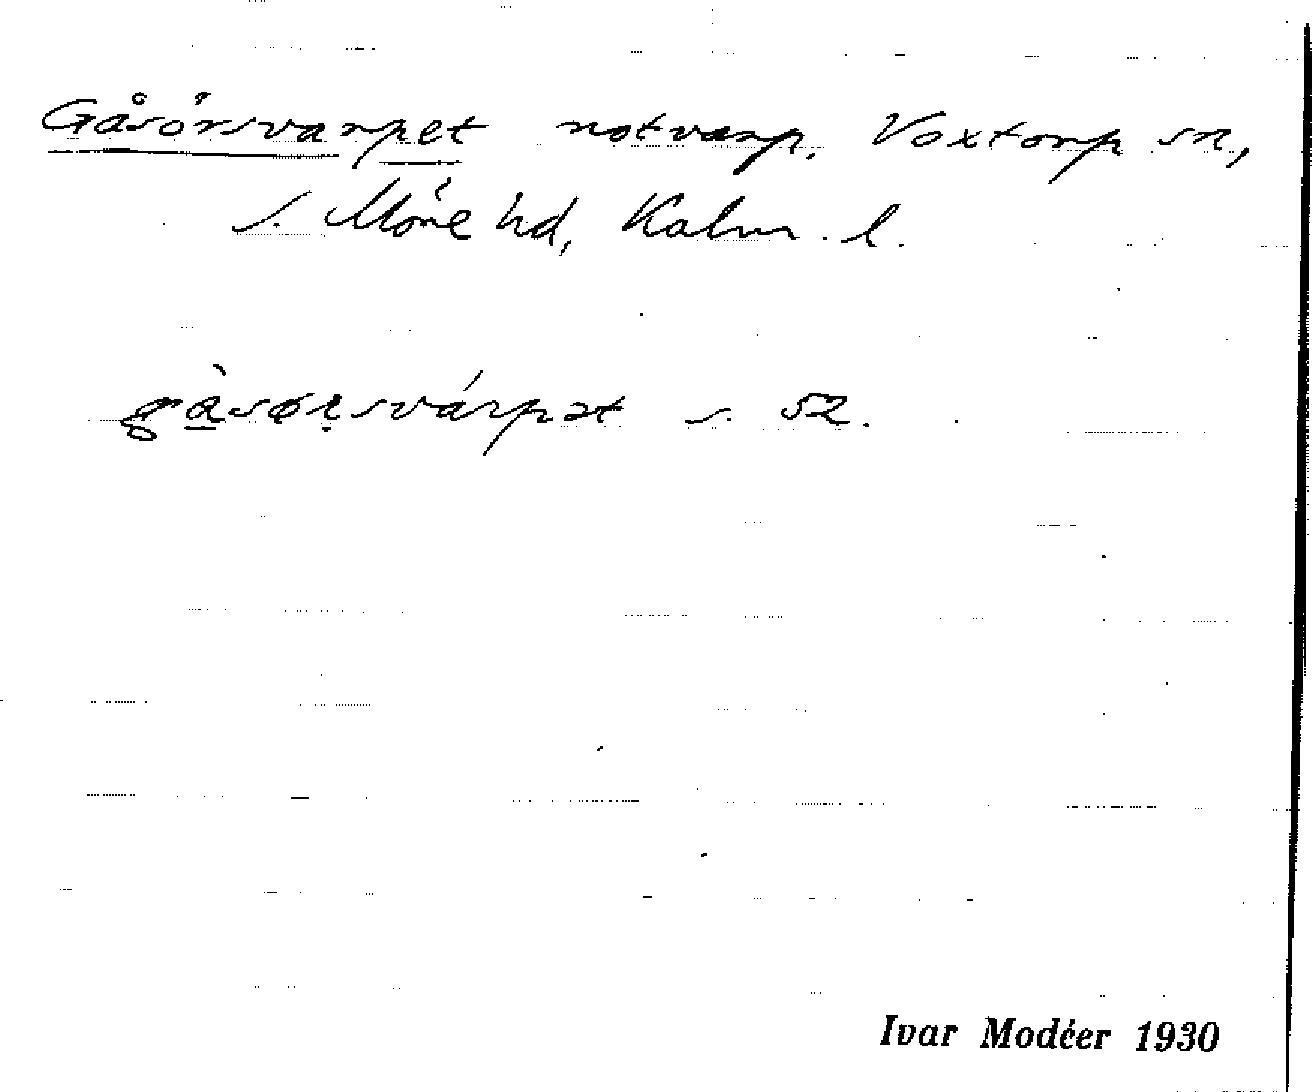 Gåsörsvarpet notvarp, Voxtorp sn,
s. Möre hd, Kalm. l.
gàsørsvárpət s. 52.
Ivar Modéer 1930